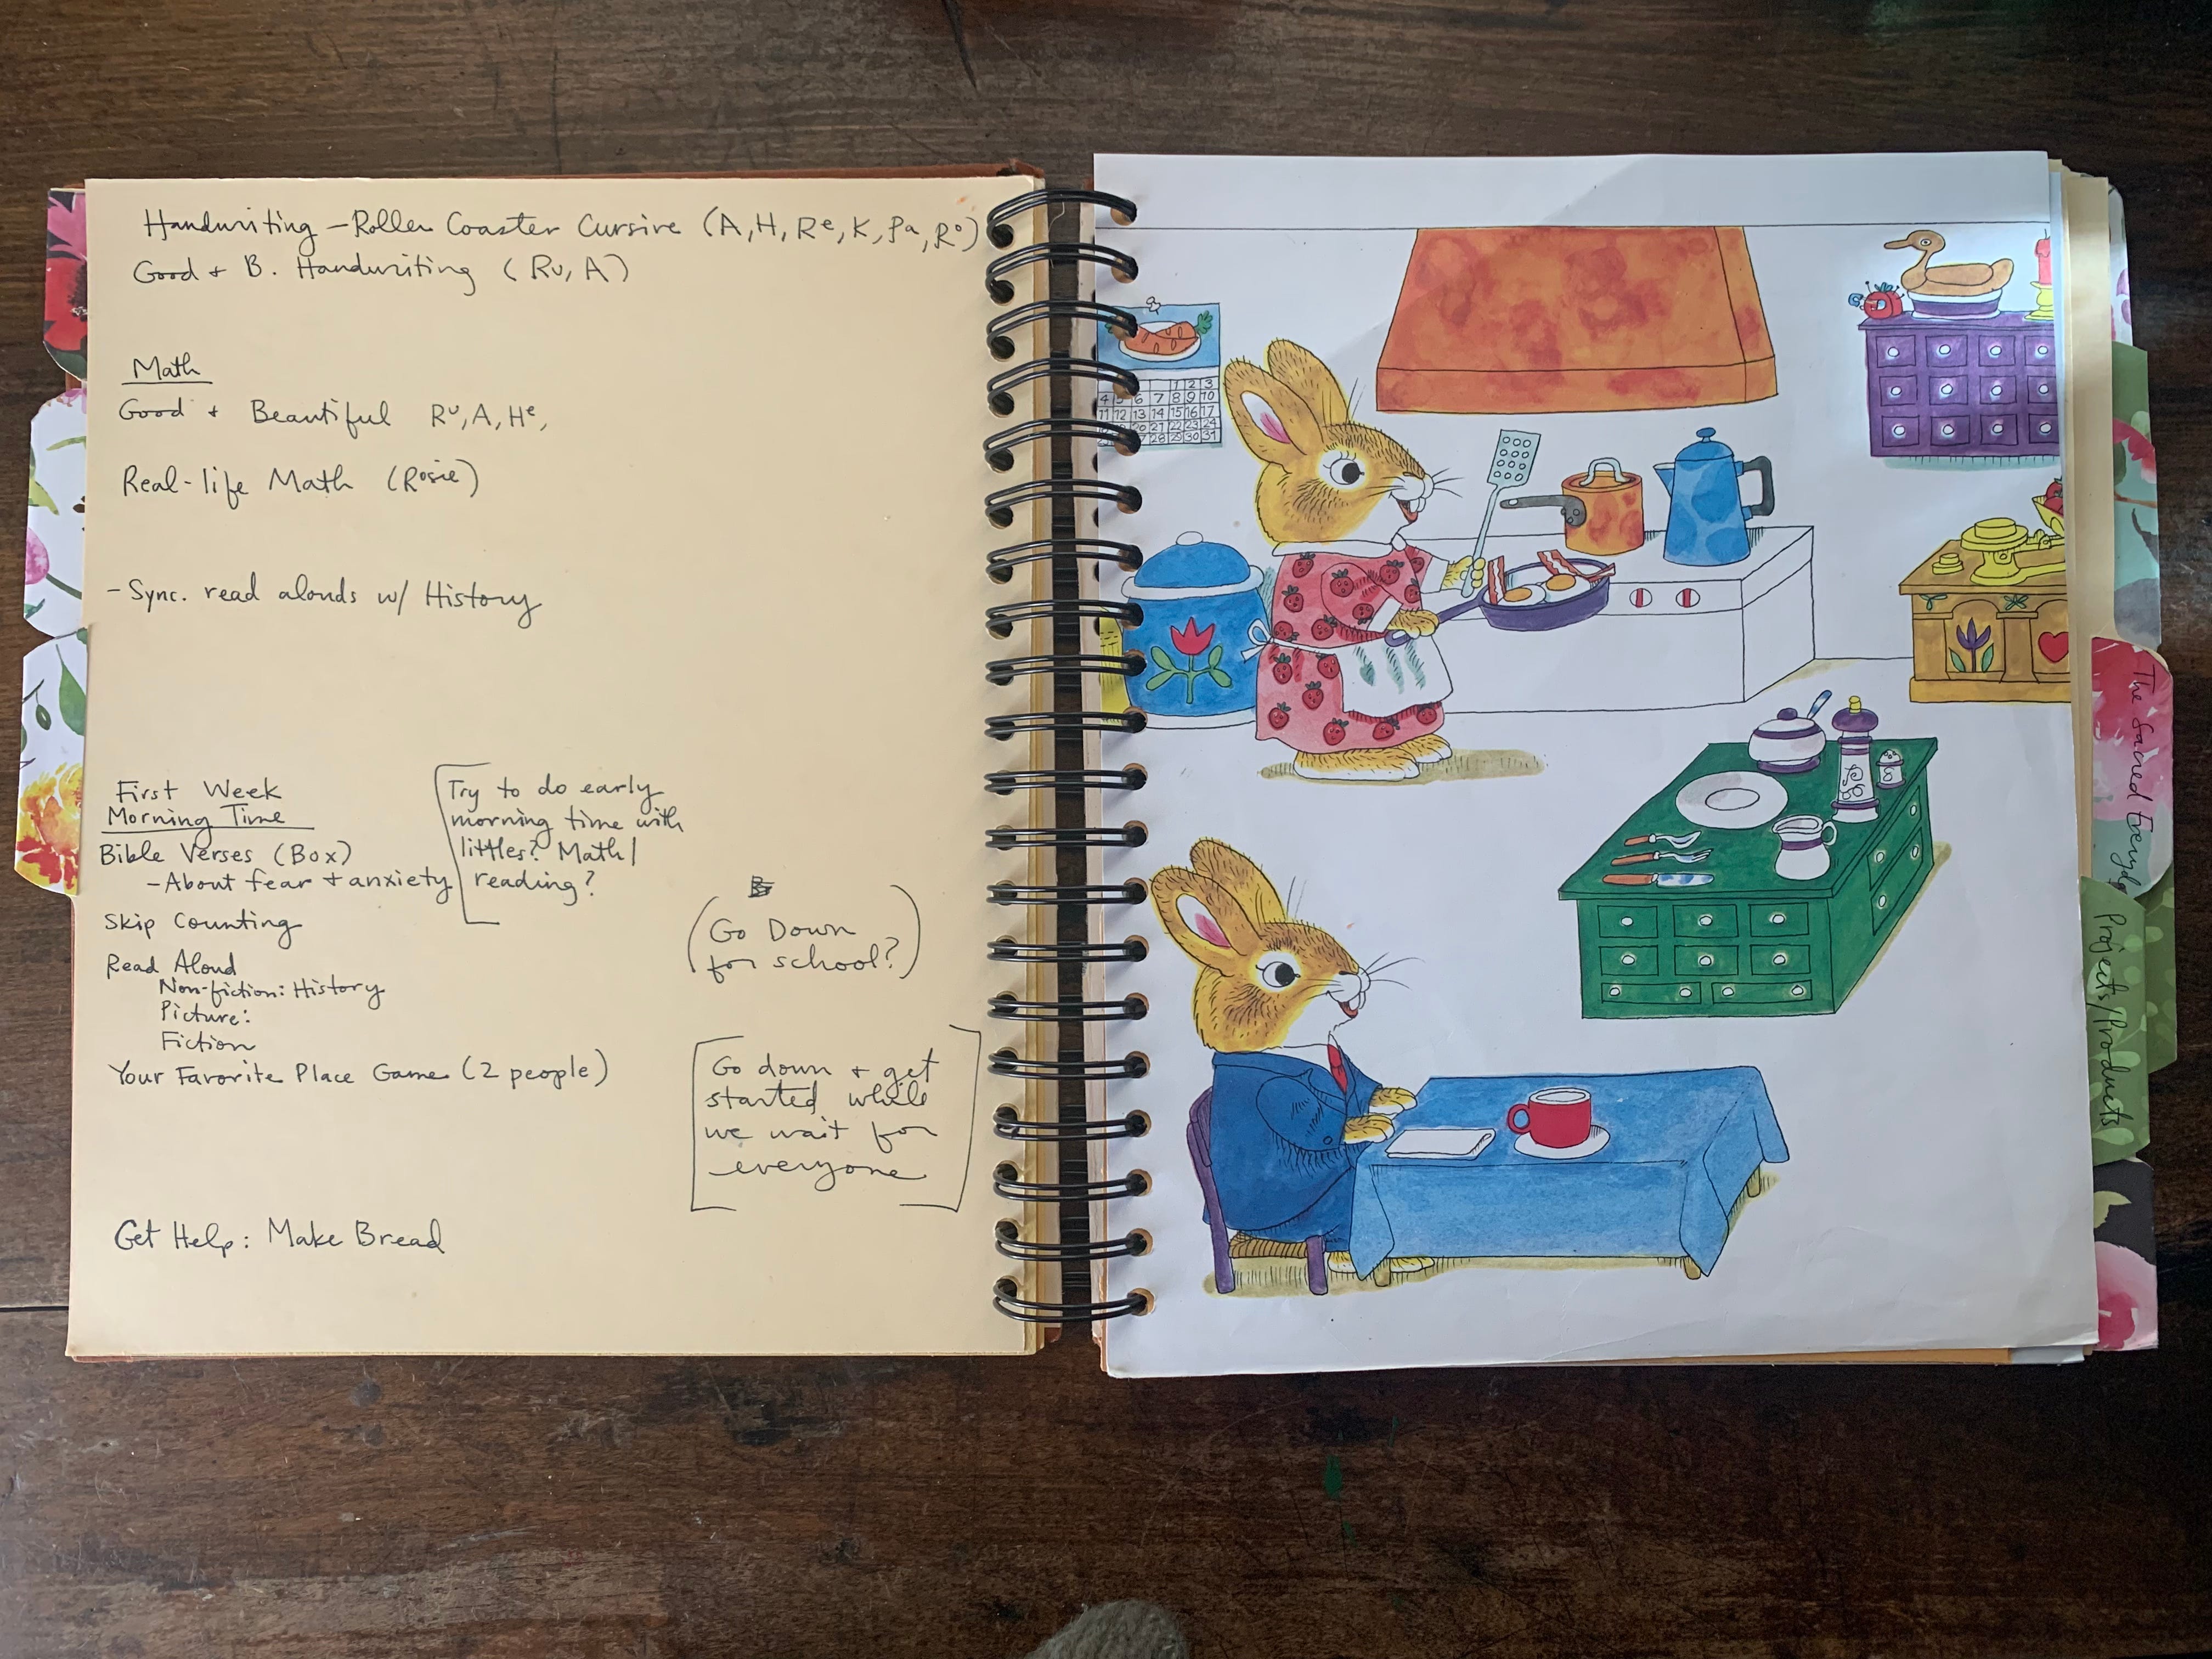 Handwriting - Roller Coaster Cursive (A, H, Re, K, Pa, Ro)
Good + B. Handwriting (Ru, A)
Math
Good + Beautiful Ru, A, He,
Real-life Math (Rosie)
- Sync. read alouds w/ History
First Week
Morning Time
Bible Verses (Box)
- About fear + anxiety
Skip Counting
Read Aloud
Non-fiction: History
Picture:
Fiction
Your Favorite Place Game (2 people)
Get Help: Make Bread
Try to do early
morning time with
littles? Math/
reading?
(Go Down
for school?)
Go down + get
started while
we wait for
everyone
1 2 3
4 5 6 7 8 9 10
11 12 13 14 15 16 17
26 21 22 23 24
27 28 29 30 31
The Sacred Everyday
Projects/Products